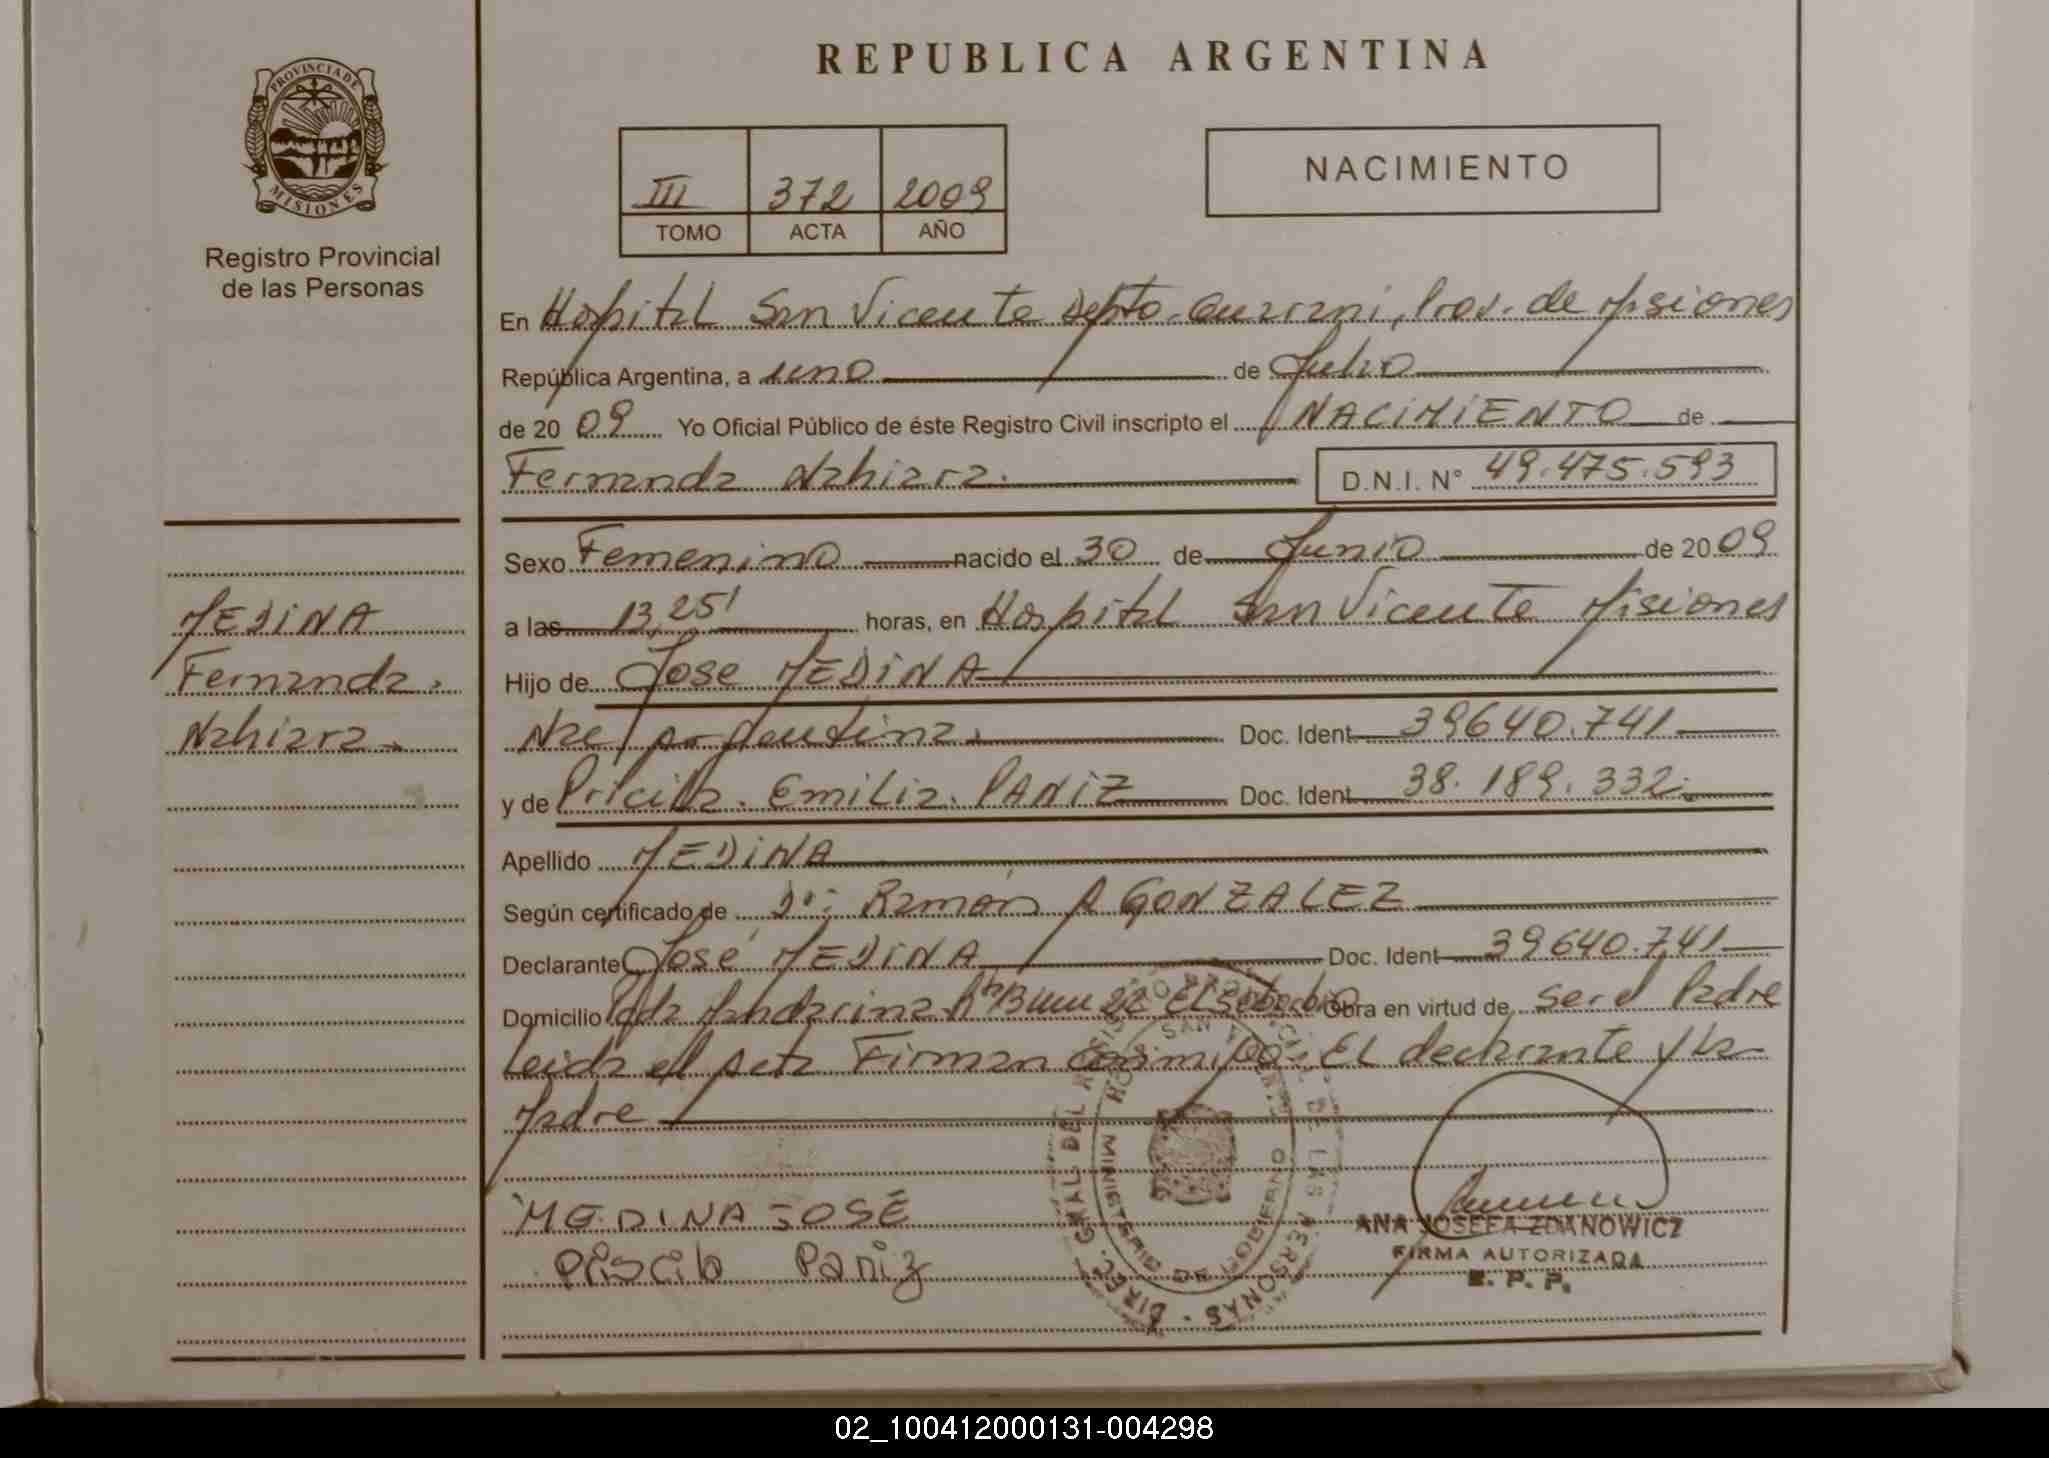 REPUBLICA ARGENTINA
PROVINCIA DE
MISIONES
Registro Provincial
de las Personas
III 372 2009
TOMO ACTA AÑO
NACIMIENTO
En Hospital San Vicente Depto. Guarani, Prov. de Misiones
República Argentina, a uno de Julio
de 20 09 Yo Oficial Público de éste Registro Civil inscripto el NACIMIENTO de
Fernanda Nahiara. D.N.I. N° 49.475.593
Sexo Femenino nacido el 30 de Junio de 20 09
a las 13,25' horas, en Hospital San Vicente Misiones
Hijo de José MEDINA
Nac argentina. Doc. Ident 39640.741
y de Pricila. Emilia. PANIZ Doc. Ident 38.189.332.
Apellido MEDINA
Según certificado de Dr: Ramón A GONZALEZ
Declarante José MEDINA Doc. Ident 39640.741
Domicilio Obra en virtud de ser el Padre
Leida el acta Firman conmigo. EL declarante y la
Madre
MEDINA JOSÉ
Priscila Paniz
MEDINA
Fernanda.
Nahiara.
DIREC. GRAL. DEL REGISTRO PROVINCIAL DE LAS PERSONAS
HOSP. SAN VICENTE
MINISTERIO DE GOBIERNO
ANA JOSEFA ZDANOWICZ
FIRMA AUTORIZADA
R. P. P.
02_100412000131-004298